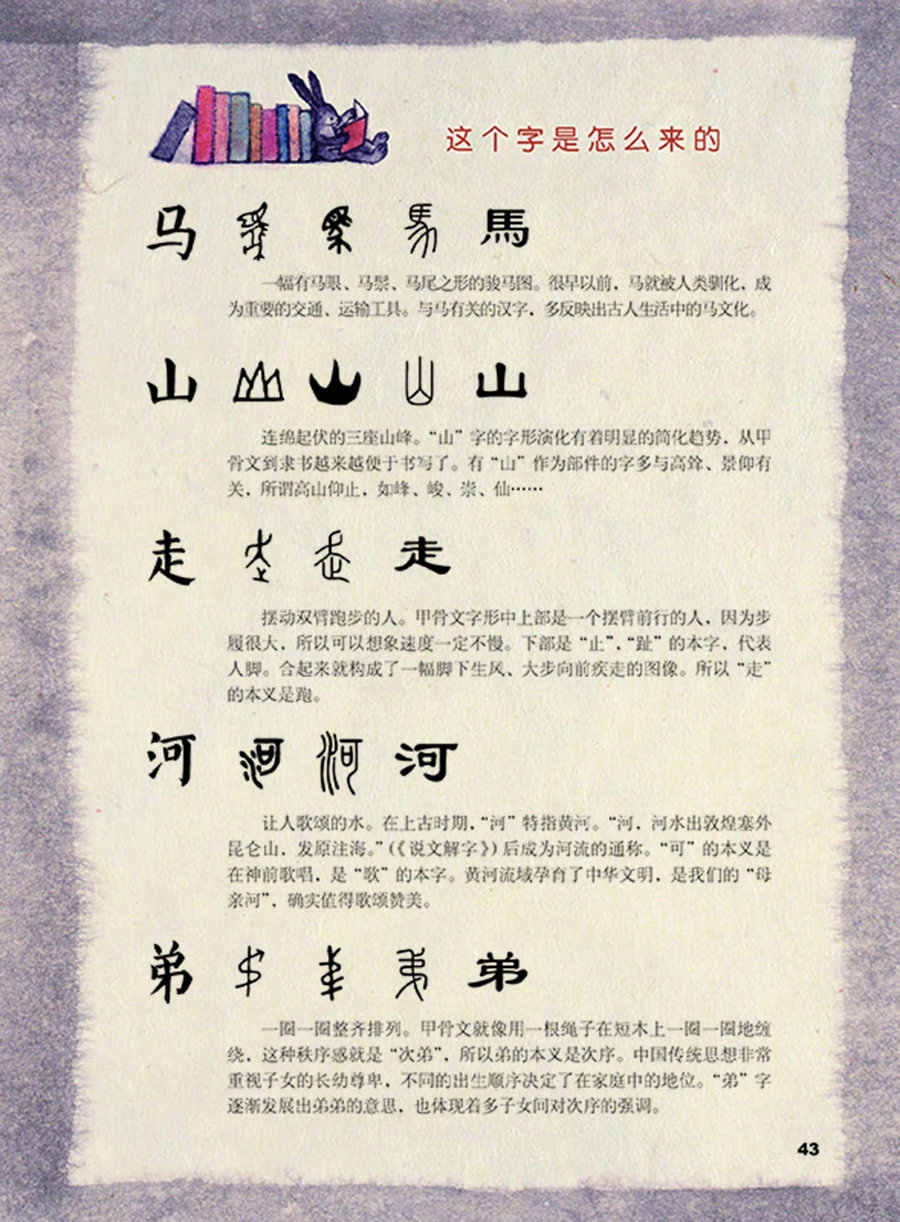 这个字是怎么来的
马 馬
一幅有马眼、马鬃、马尾之形的骏马图。很早以前，马就被人类驯化，成
为重要的交通、运输工具。与马有关的汉字，多反映出古人生活中的马文化。
山 山
连绵起伏的三座山峰。“山”字的字形演化有着明显的简化趋势，从甲
骨文到隶书越来越便于书写了。有“山”作为部件的字多与高耸、景仰有
关，所谓高山仰止，如峰、峻、崇、仙……
走 走
摆动双臂跑步的人。甲骨文字形中上部是一个摆臂前行的人，因为步
履很大，所以可以想象速度一定不慢。下部是“止”，“趾”的本字，代表
人脚。合起来就构成了一幅脚下生风、大步向前疾走的图像。所以“走”
的本义是跑。
河 河
让人歌颂的水。在上古时期，“河”特指黄河。“河，河水出敦煌塞外
昆仑山，发原注海。”（《说文解字》）后成为河流的通称。“可”的本义是
在神前歌唱，是“歌”的本字。黄河流域孕育了中华文明，是我们的“母
亲河”，确实值得歌颂赞美。
弟 弟
一圈一圈整齐排列。甲骨文就像用一根绳子在短木上一圈一圈地缠
绕，这种秩序感就是“次弟”，所以弟的本义是次序。中国传统思想非常
重视子女的长幼尊卑，不同的出生顺序决定了在家庭中的地位。“弟”字
逐渐发展出弟弟的意思，也体现着多子女间对次序的强调。
43